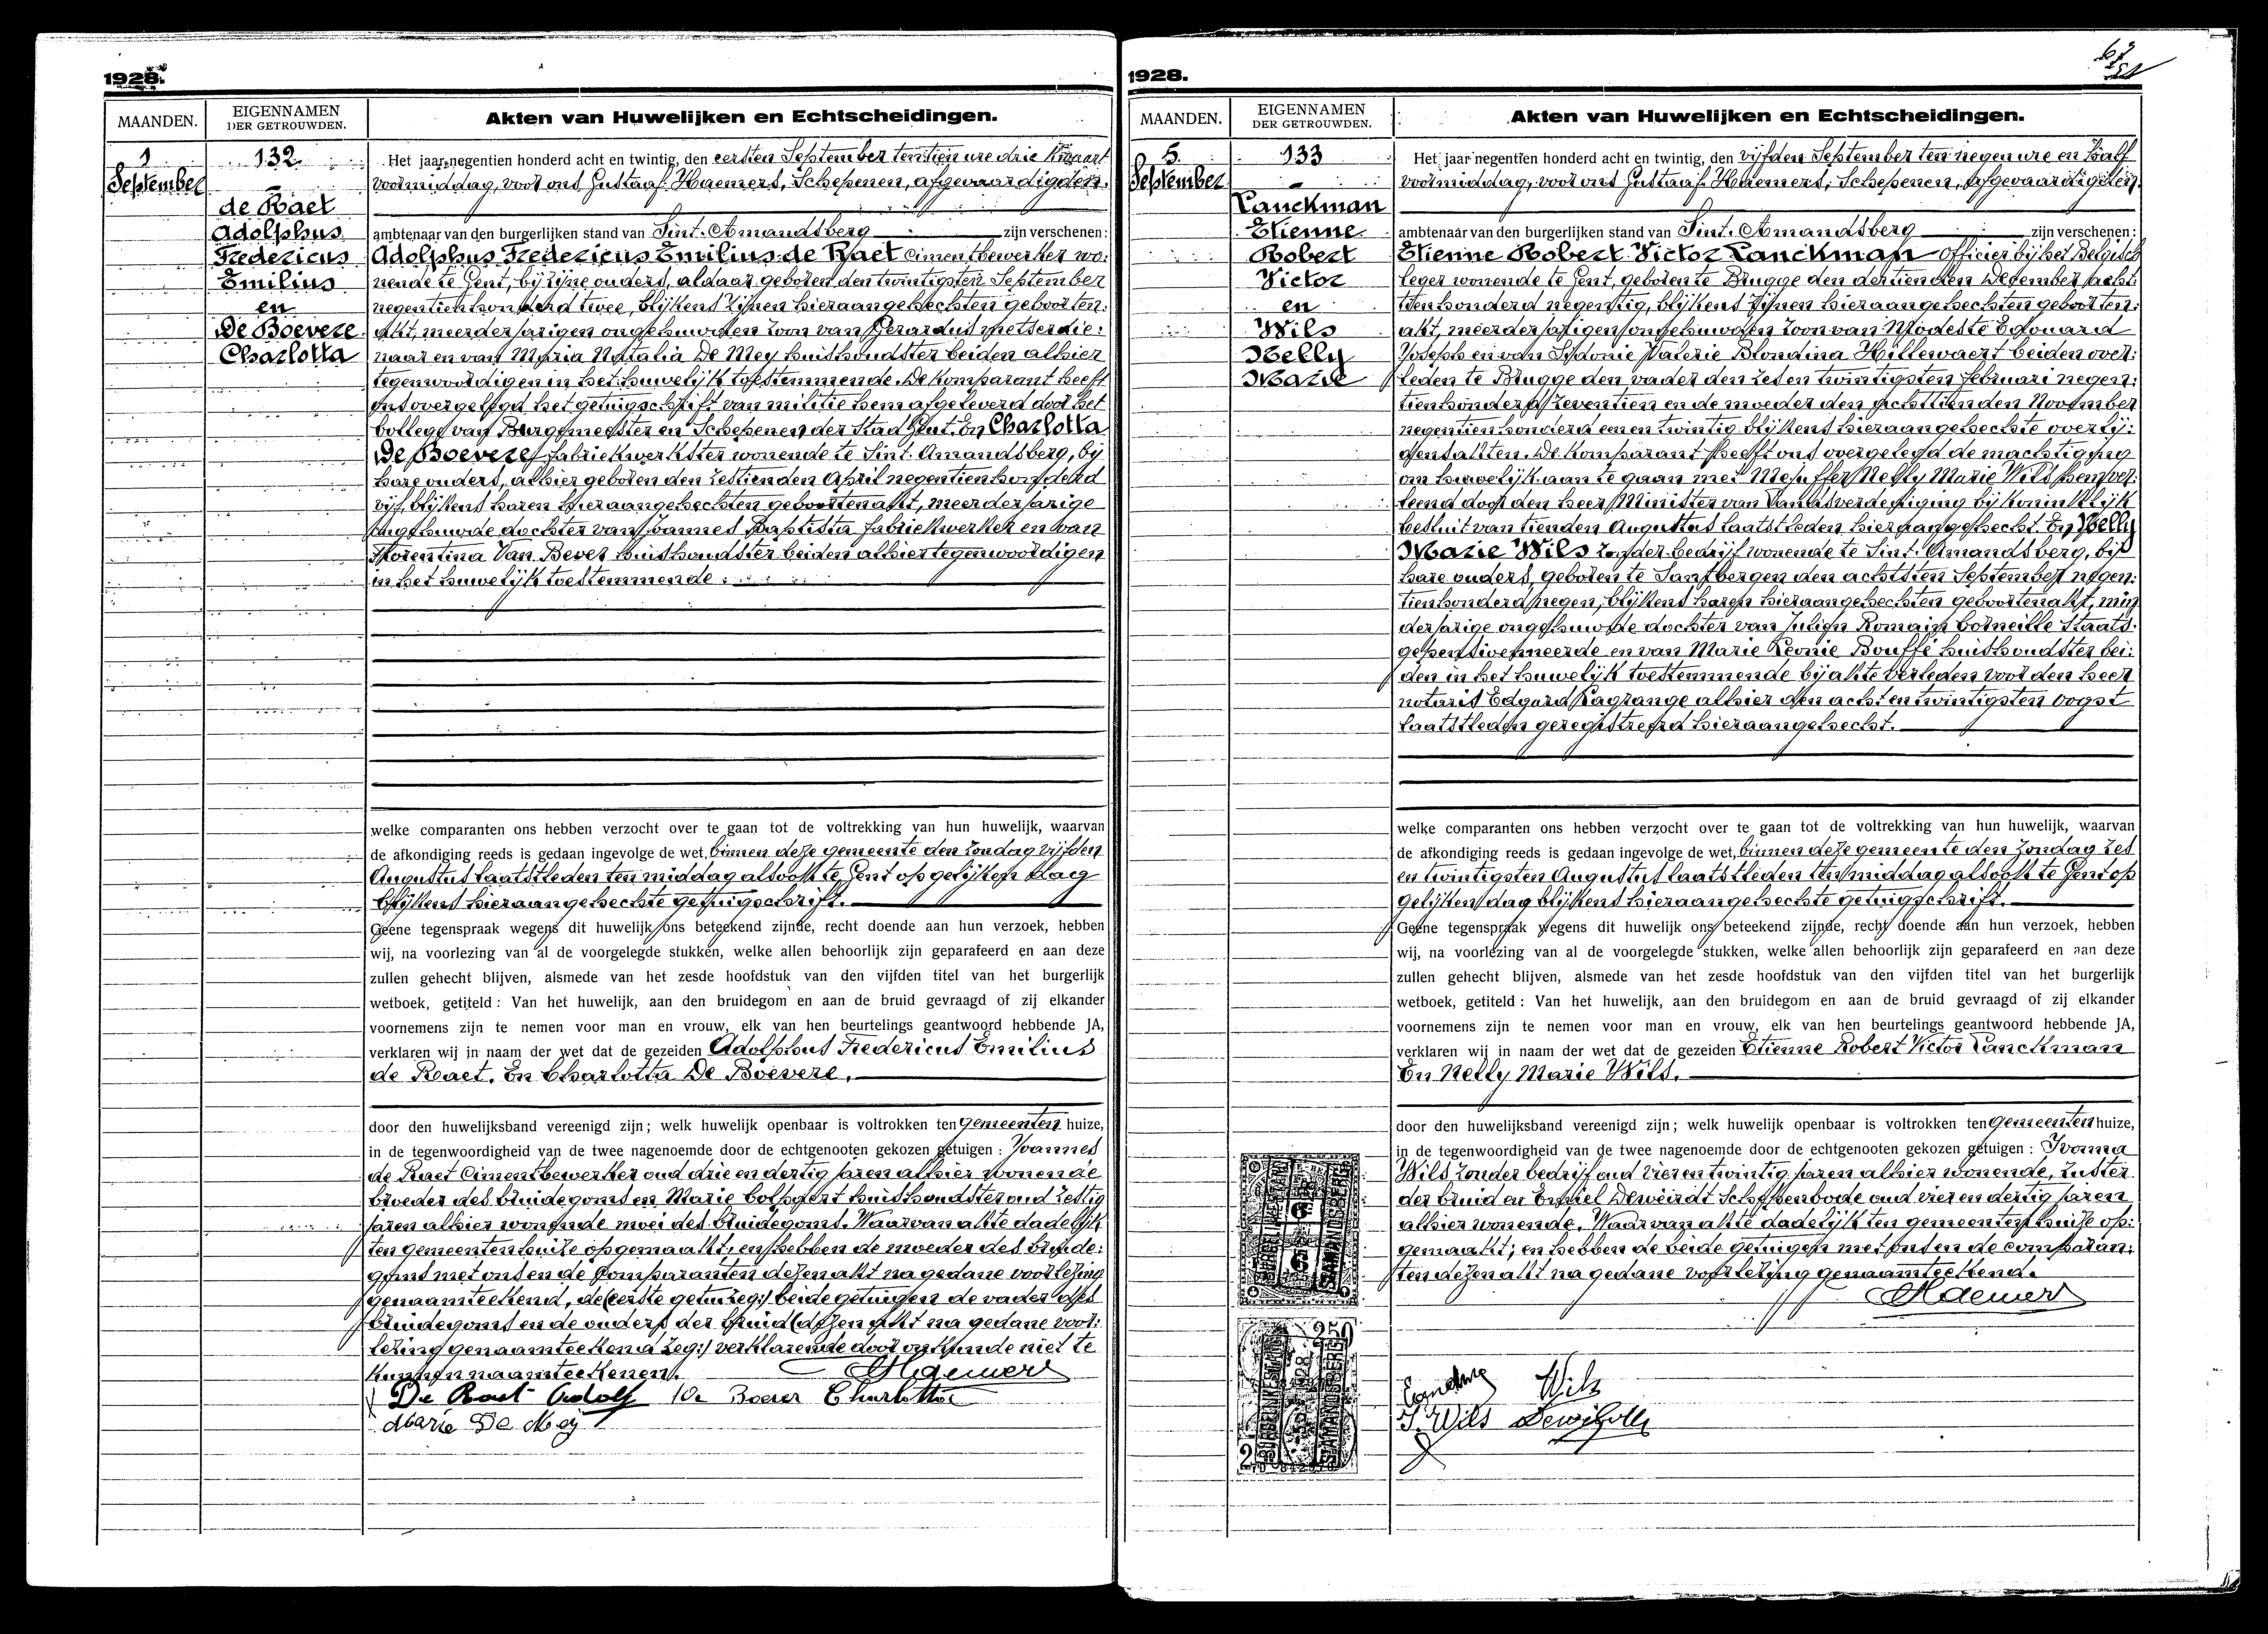 1928.
MAANDEN.
EIGENNAMEN
DER GETROUWDEN.
Akten van Huwelijken en Echtscheidingen.
1
September
132
de Raet
Adolphus
Fredericus
Emilius
en
De Boevere
Charlotta
Het jaar negentien honderd acht en twintig, den eersten September ten tien ure drie kwaart
voormiddag, voor ons Gustaaf Haemers, Schepenen, afgevaardigden
ambtenaar van den burgerlijken stand van Sint-Amandsberg zijn verschenen:
Adolphus Fredericus Emilius de Raet cimentbewerker wo:
nende te Gent, bij zijne ouders, aldaar geboren den twintigsten September
negentienhonderd twee, blijkens zijnen hieraangehechten geboorten:
akt, meerderjarigen ongehuwden zoon van Gerardus metserdie:
naar en van Maria Natalia De Mey huishoudster beiden alhier
tegenwoordigen in het huwelijk toestemmende. De komparant heeft
ons overgelegd het getuigschrift van militie hem afgeleverd door het
College van Burgemeester en Schepenen der Stad Gent. En Charlotta
De Boevere fabriekwerkster wonende te Sint-Amandsberg, bij
hare ouders, alhier geboren den zestienden April negentienhonderd
vijf, blijkens haren hieraangehechten geboortenakt, meerderjarige
ongehuwde dochter van Joannes Baptista fabriekwerker en van
Florentina Van Bever huishoudster beiden alhier tegenwoordigen
in het huwelijk toestemmende.
welke comparanten ons hebben verzocht over te gaan tot de voltrekking van hun huwelijk, waarvan
de afkondiging reeds is gedaan ingevolge de wet, binnen deze gemeente den zondag vijfden
Augustus laatstleden ten middag alsook te Gent op gelijken dag
blijkens hieraangehechte getuigschrift.
Geene tegenspraak wegens dit huwelijk ons beteekend zijnde, recht doende aan hun verzoek, hebben
wij, na voorlezing van al de voorgelegde stukken, welke allen behoorlijk zijn geparafeerd en aan deze
zullen gehecht blijven, alsmede van het zesde hoofdstuk van den vijfden titel van het burgerlijk
wetboek, getiteld : Van het huwelijk, aan den bruidegom en aan de bruid gevraagd of zij elkander
voornemens zijn te nemen voor man en vrouw, elk van hen beurtelings geantwoord hebbende JA,
verklaren wij in naam der wet dat de gezeiden Adolphus Fredericus Emilius
de Raet. En Charlotta De Boevere.
door den huwelijksband vereenigd zijn; welk huwelijk openbaar is voltrokken ten Gemeenten huize,
in de tegenwoordigheid van de twee nagenoemde door de echtgenooten gekozen getuigen : Joannes
de Raet Cimentbewerker oud drie en dertig jaren alhier wonende
broeder des bruidegoms en Marie huishoudster oud zestig
jaren alhier wonende moei des bruidegoms. Waarvan akte dadelijk
ten gemeentenhuize opgemaakt; en hebben de moeder des bruide:
goms met ons en de komparanten dezen akt na gedane voorlezing
genaamteekend, de (eerste getui zeg:) beide getuigen de vader des
bruidegoms en de ouders der bruid (dezen akt na gedane voor:
lezing genaamteekend zeg:) verklarende door onkunde niet te
kunnen naamteekenen.
Haemers
De Raet Adolf De Boever Charlotta
Marie De Mey
1928.
MAANDEN.
EIGENNAMEN
DER GETROUWDEN.
Akten van Huwelijken en Echtscheidingen.
5
September
133
Lanckman
Etienne
Robert
Victor
en
Wils
Nelly
Marie
Het jaar negentien honderd acht en twintig, den vijfden September ten negen ure en half
voormiddag, voor ons Gustaaf Haemers, Schepenen, afgevaardigden
ambtenaar van den burgerlijken stand van Sint-Amandsberg zijn verschenen:
Etienne Robert Victor Lanckman Officier bij het Belgisch
leger wonende te Gent, geboren te Brugge den dertienden December acht:
tien honderd negentig, blijkens zijnen hieraangehechten geboorten:
akt, meerderjarigen ongehuwden zoon van Modeste Edouard
Joseph en van Sydonie Valerie Blondina Hillewaert beiden over:
leden te Brugge den vader den zes en twintigsten Februari negen:
tienhonderd zeventien en de moeder den achttienden November
negentienhonderd een en twintig blijkens hieraangehechte overlij:
densakten. De komparant heeft ons overgelegd de machtiging
om huwelijk aan te gaan met Mejuffer Nelly Marie Wils hem ver:
leend door den heer Minister van Landsverdediging bij koninklijk
besluit van tienden Augustus laatstleden hieraangehecht. En Nelly
Marie Wils zonder bedrijf wonende te Sint-Amandsberg, bij
hare ouders, geboren te Santbergen den achtsten September negen:
tienhonderd negen, blijkens haren hieraangehechten geboortenakt, min
derjarige ongehuwde dochter van Julien Romain Corneille Staats:
gepensioneerde en van Marie Leonie Bouffé huishoudster bei:
den in het huwelijk toestemmende bij akte verleden voor den heer
notaris Edgard Lagrange alhier den acht en twintigsten Oogst
laatstleden geregistreerd hieraangehecht.
welke comparanten ons hebben verzocht over te gaan tot de voltrekking van hun huwelijk, waarvan
de afkondiging reeds is gedaan ingevolge de wet, binnen deze gemeente den zondag zes
en twintigsten Augustus laatstleden ten middag alsook te Gent op
gelijken dag blijkens hieraangehechte getuigschrift.
Geene tegenspraak wegens dit huwelijk ons beteekend zijnde, recht doende aan hun verzoek, hebben
wij, na voorlezing van al de voorgelegde stukken, welke allen behoorlijk zijn geparafeerd en aan deze
zullen gehecht blijven, alsmede van het zesde hoofdstuk van den vijfden titel van het burgerlijk
wetboek, getiteld : Van het huwelijk, aan den bruidegom en aan de bruid gevraagd of zij elkander
voornemens zijn te nemen voor man en vrouw, elk van hen beurtelings geantwoord hebbende JA,
verklaren wij in naam der wet dat de gezeiden Etienne Robert Victor Lanckman
En Nelly Marie Wils.
door den huwelijksband vereenigd zijn; welk huwelijk openbaar is voltrokken ten Gemeenten huize,
in de tegenwoordigheid van de twee nagenoemde door de echtgenooten gekozen getuigen : Yvonna
Wils zonder bedrijf oud vier en twintig jaren alhier wonende, zuster
der bruid en Deweirdt Schepenbode oud vier en dertig jaren
alhier wonende. Waarvan akte dadelijk ten gemeentenhuize op:
gemaakt; en hebben de beide getuigen met ons en de comparan:
ten dezen akt na gedane voorlezing genaamteekend.
Haemers
Wils
Y. Wils